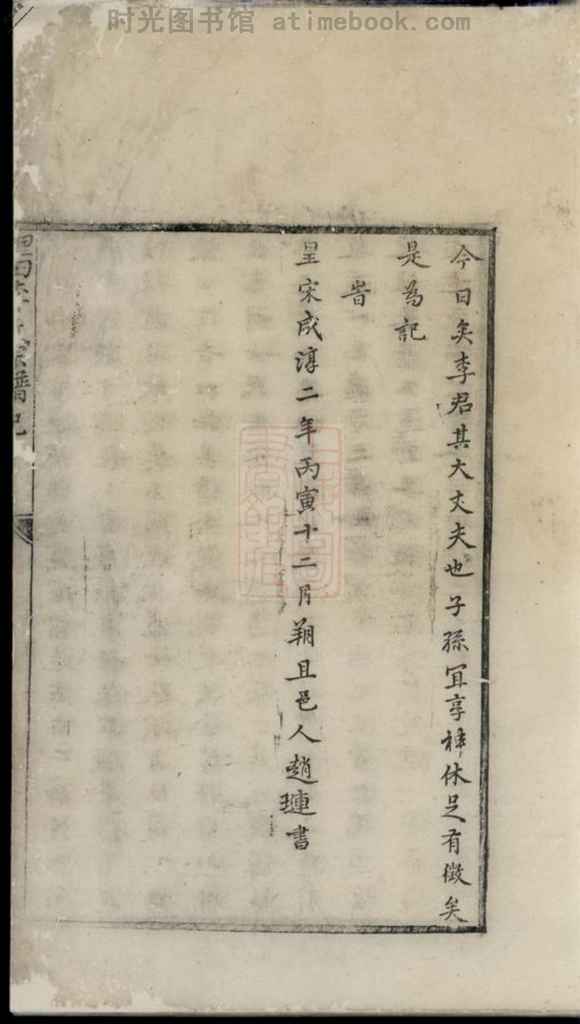 时光图书馆 atimebook.com
今日矣李君其大丈夫也子孫宜享神休足有徵矣
是為記
旹
皇宋咸淳二年丙寅十二月朔旦邑人趙璉書
宗譜記